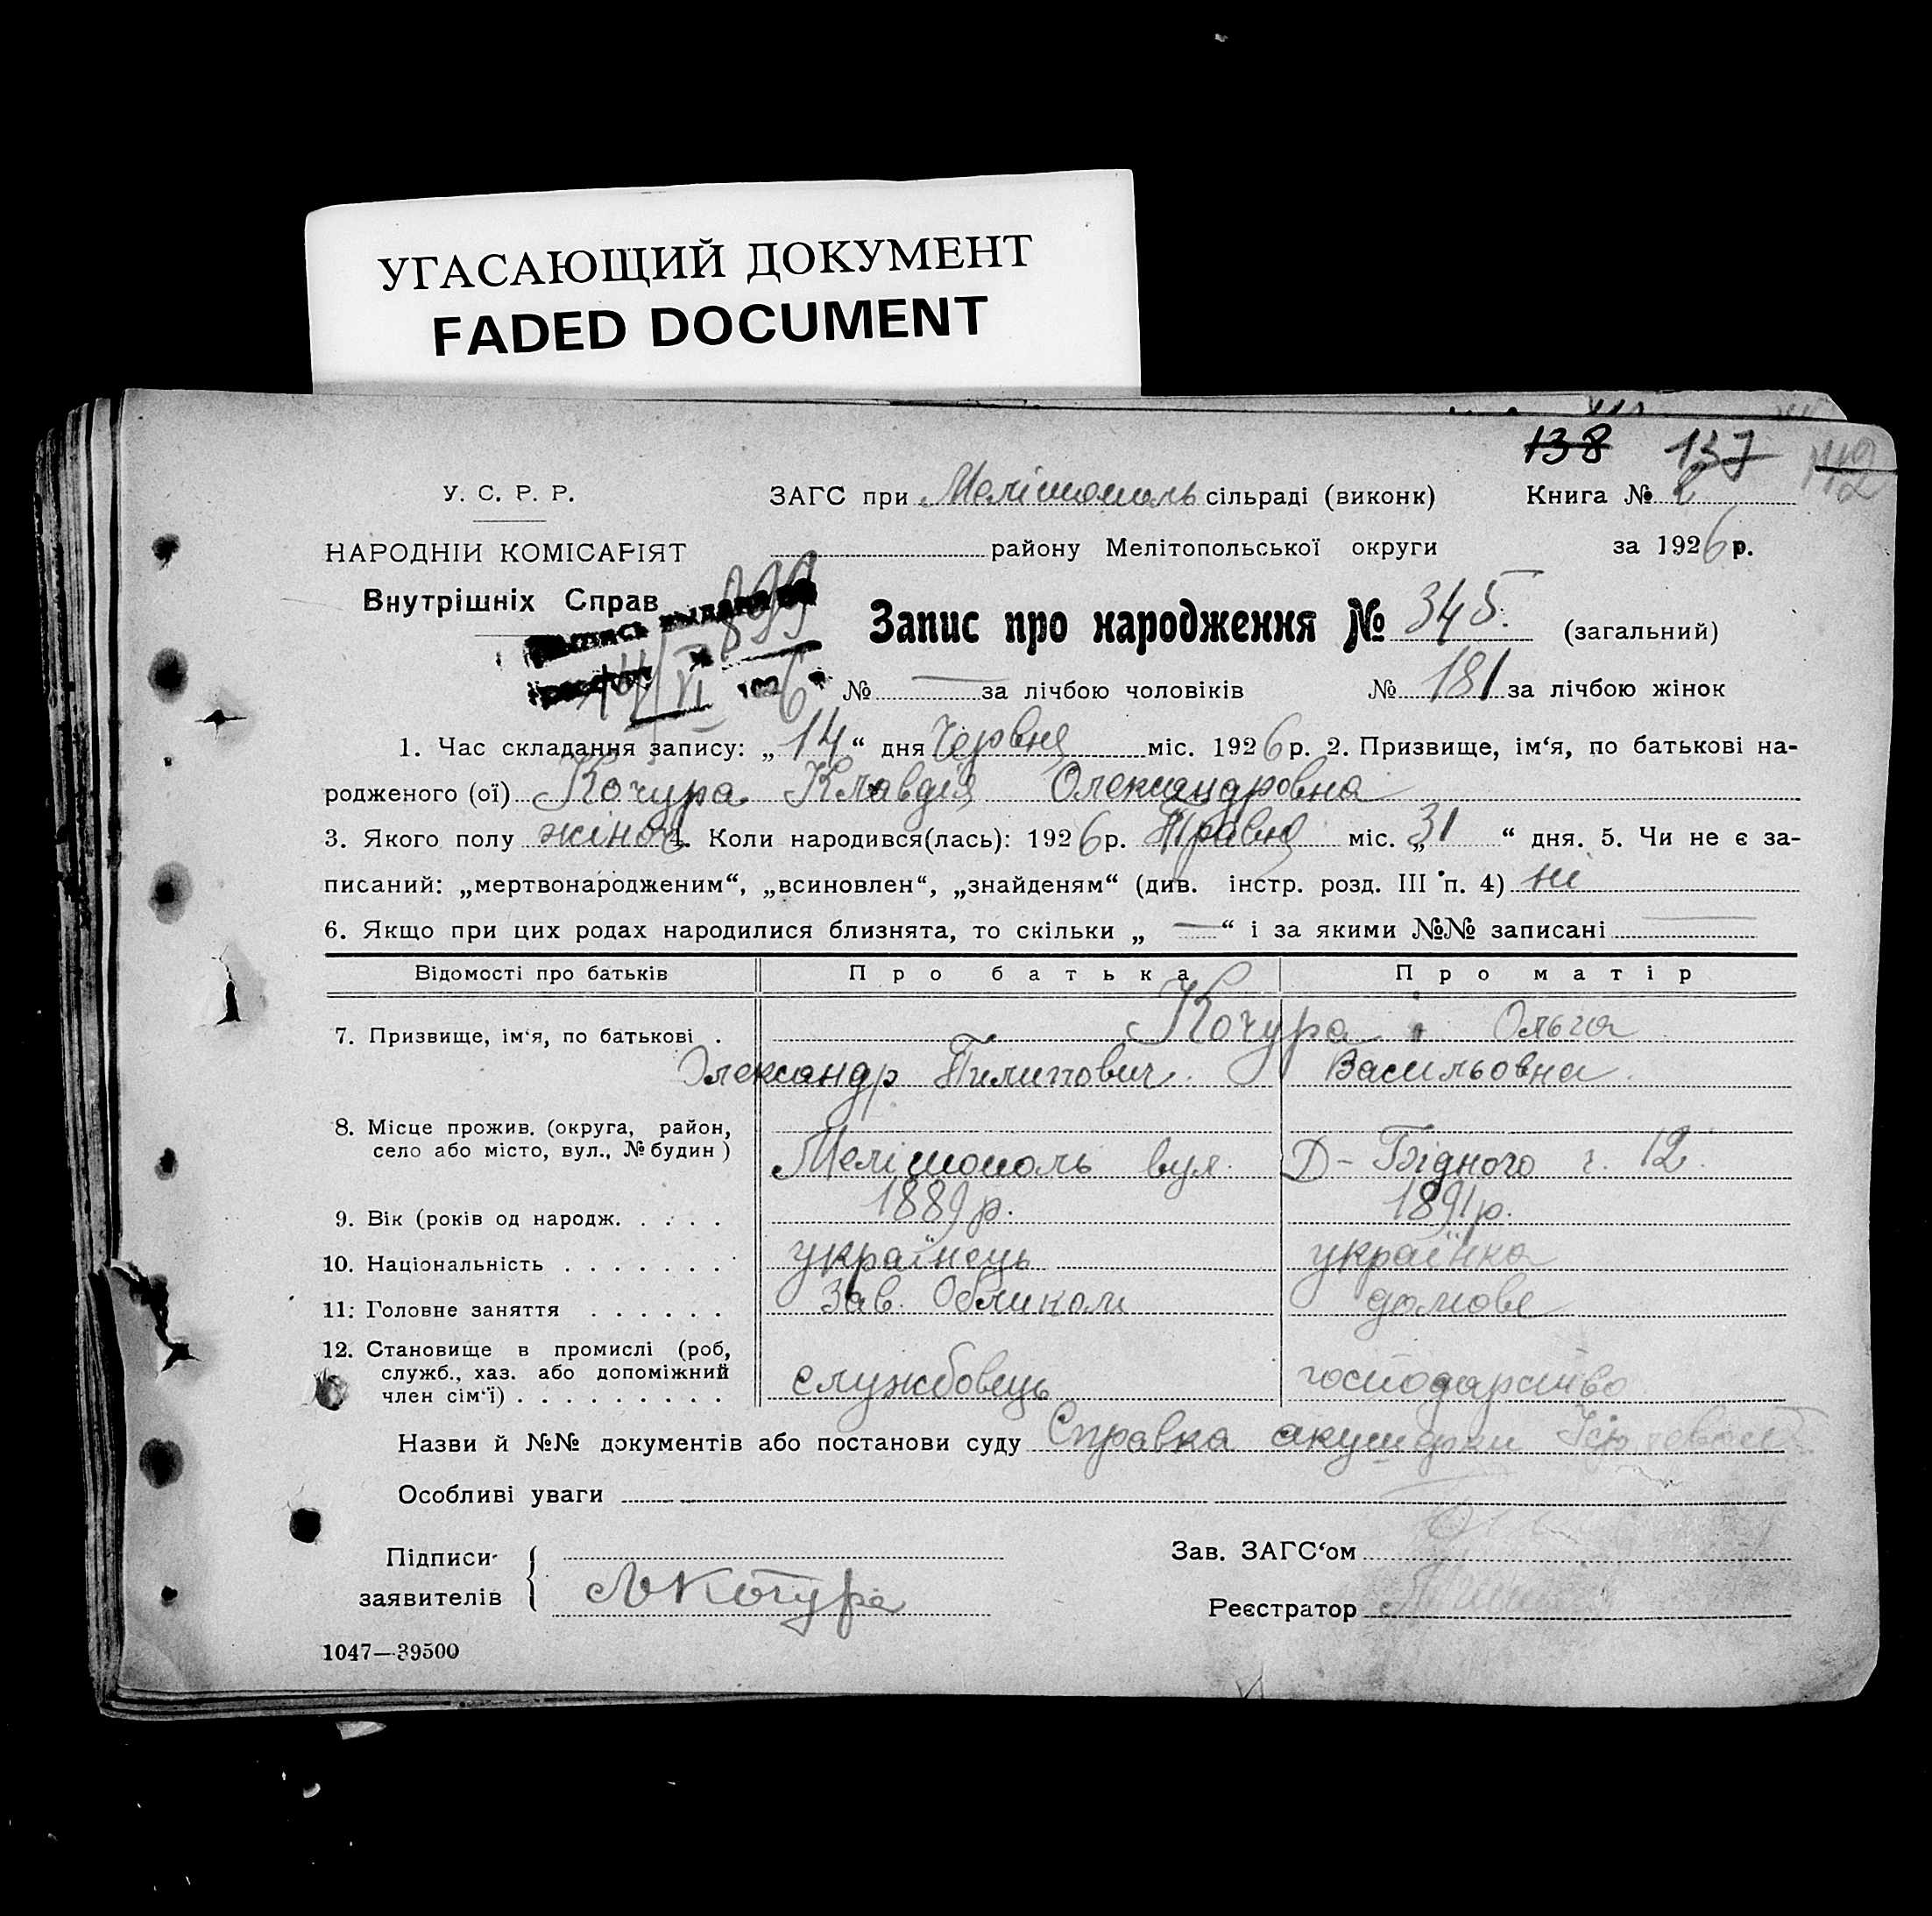 УГАСАЮЩИЙ ДОКУМЕНТ
FADED DOCUMENT
138 137 142
У. С. Р. Р.
ЗАГС при Мелітополь сільраді (виконк) Книга № 2
НАРОДНІЙ КОМІСАРІЯТ
району Мелітопольської округи за 1926 р.
Внутрішніх Справ
899
14/VI 1926
Запис про народження № 345. (загальний)
№ — за лічбою чоловіків № 181 за лічбою жінок
1. Час складання запису: „ 14 “ дня Червня міс. 1926 р. 2. Призвище, ім‘я, по батькові на-
родженого (ої) Кочура Клавдія Олександровна
3. Якого полу жіноч 4. Коли народився(лась): 1926 р. Травня міс. „ 31 “ дня. 5. Чи не є за-
писаний: „мертвонародженим“, „всиновлен“, „знайденям“ (див. інстр. розд. III п. 4) ні
6. Якщо при цих родах народилися близнята, то скільки „ — “ і за якими №№ записані —
Відомості про батьків Про батька Про матір
7. Призвище, ім‘я, по батькові . Кочура Ольга
Олександр Пилипович. Васильовна.
8. Місце прожив. (округа, район,
село або місто, вул., № будин ) Мелітополь вул. Д-Бідного ч. 12.
9. Вік (років од народж. . . . . 1889 р. 1891 р.
10. Національність . . . . . . . українець українка
11. Головне заняття . . . . . . Зав. домове
12. Становище в промислі (роб,
служб., хаз. або допоміжний
член сім‘ї) . . . . . . . . . службовець господарство
Назви й №№ документів або постанови суду Справка акушерки
Особливі уваги
Підписи
заявителів
Кочура
Зав. ЗАГС‘ом
Реєстратор
1047—39500